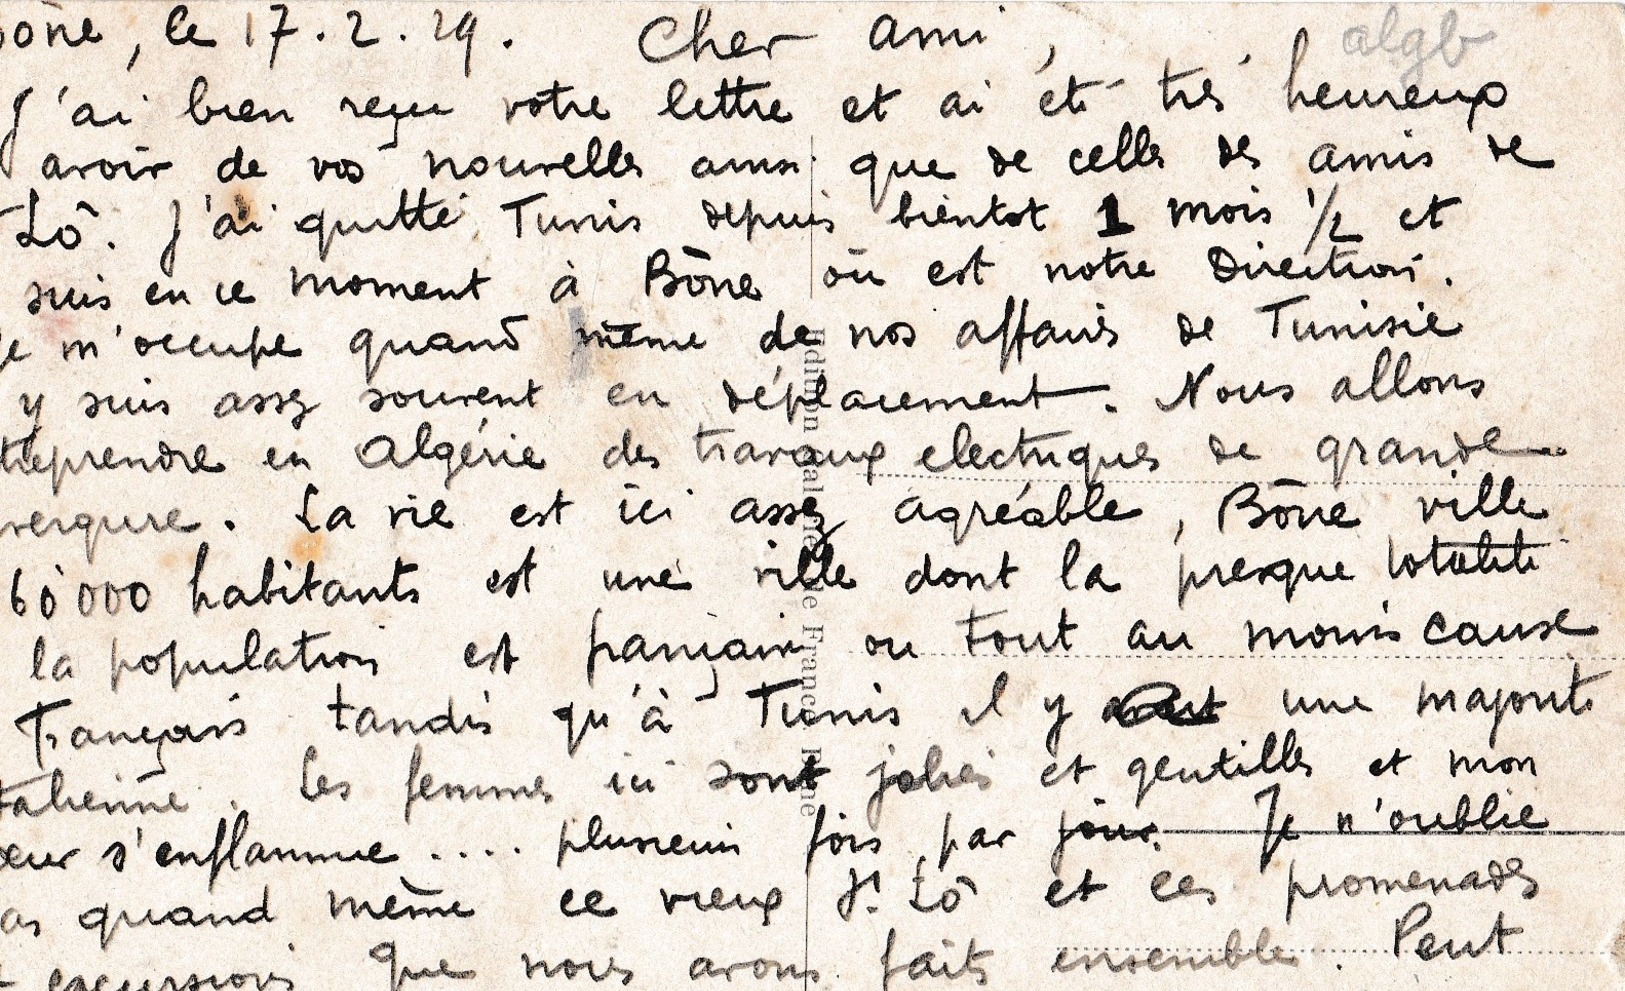 Bône, le 17.2.29. Cher ami, algb
J'ai bien reçu votre lettre et ai été très heureux
avoir de vos nouvelles ainsi que de celles des amis de
Lô. J'ai quitté Tunis depuis bientot 1 mois 1/2 et
suis en ce moment à Bône où est notre Direction.
Je m'occupe quand même de nos affaires de Tunisie
y suis assez souvent en déplacement. Nous allons
treprendre en Algérie des travaux electriques de grande
vergure. La vie est ici assez agréable, Bône ville
60000 habitants est une ville dont la presque totalité
la population est française ou tout au moins cause
Français tandis qu'à Tunis il y a une majorité
talienne. Les femmes ici sont jolies et gentilles et mon
œur s'enflamme .... plusieurs fois par jour. Je n'oublie
as quand même ce vieux St Lô et ces promenades
t excursions que nous avons faits ensemble. Peut